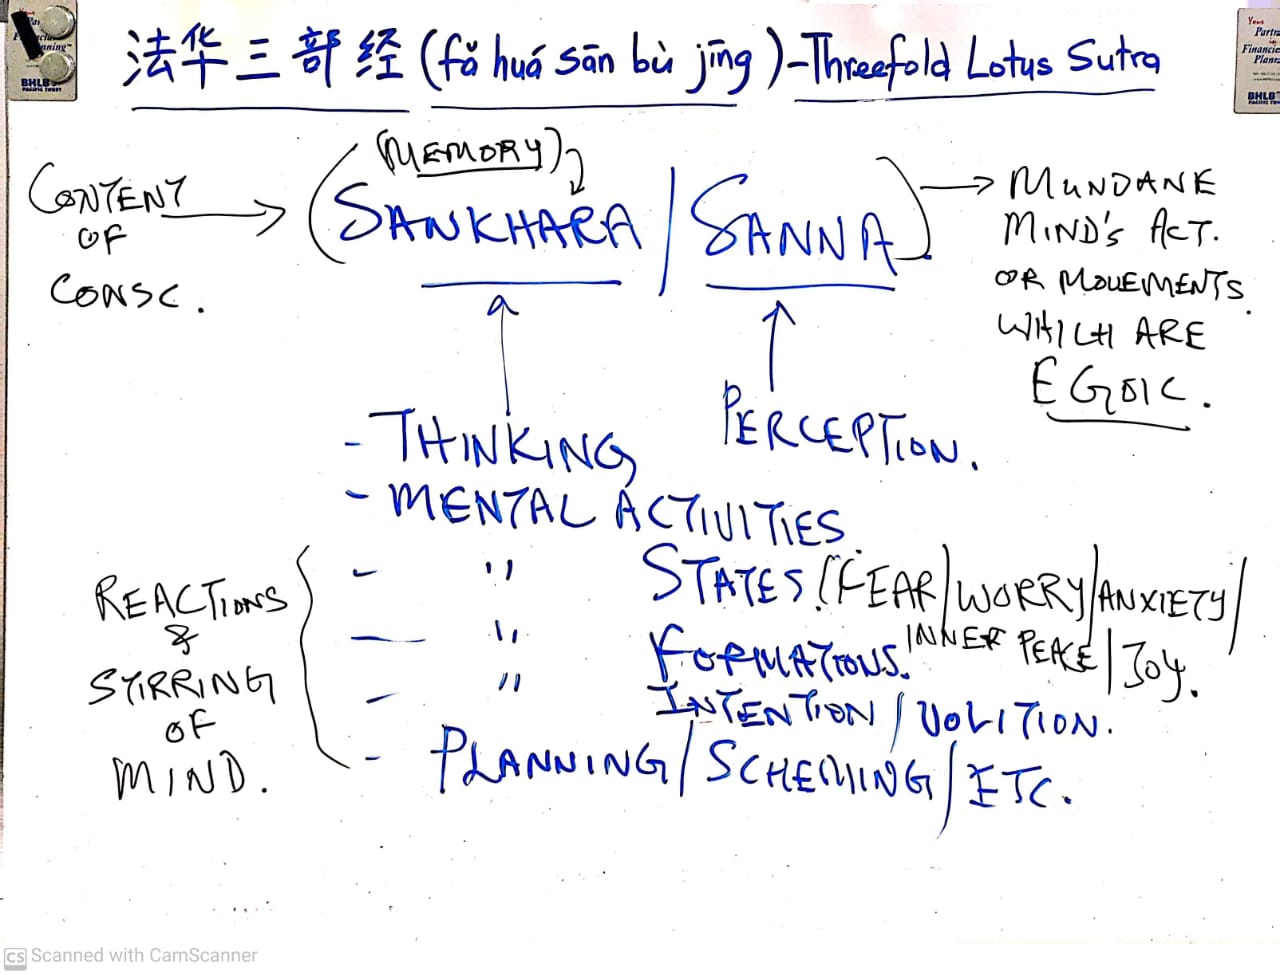 法华三部经 (fǎ huá sān bù jīng) - Threefold Lotus Sutra
CONTENT
OF
CONSC.
(MEMORY)
(SANKHARA / SANNA)
MUNDANE
MIND'S ACT.
OR MOVEMENTS.
WHICH ARE
EGOIC.
PERCEPTION.
- THINKING
- MENTAL ACTIVITIES
- " STATES (FEAR/WORRY/ANXIETY/
INNER PEACE/JOY.
- " FORMATIONS.
- " INTENTION / VOLITION.
- PLANNING/SCHEMING/ETC.
REACTIONS
&
STIRRING
OF
MIND.
BHLB
PACIFIC TRUST
Your
Financial
BHLB
CS Scanned with CamScanner